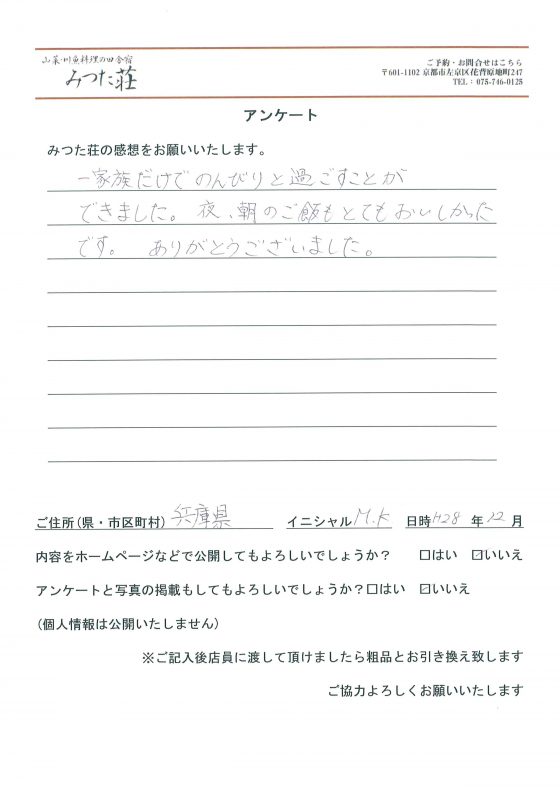 山菜・川魚料理の田舎宿
みつた荘
ご予約・お問合せはこちら
〒601-1102 京都市左京区花背原地町247
TEL : 075-746-0125
アンケート
みつた荘の感想をお願いいたします。
一家族だけでのんびりと過ごすことが
できました。夜、朝のご飯もとてもおいしかった
です。 ありがとうございました。
ご住所(県・市区町村) 兵庫県 イニシャル M.K 日時 H28 年 12 月
内容をホームページなどで公開してもよろしいでしょうか? □はい ☑いいえ
アンケートと写真の掲載もしてもよろしいでしょうか?□はい ☑いいえ
(個人情報は公開いたしません)
※ご記入後店員に渡して頂けましたら粗品とお引き換え致します
ご協力よろしくお願いいたします